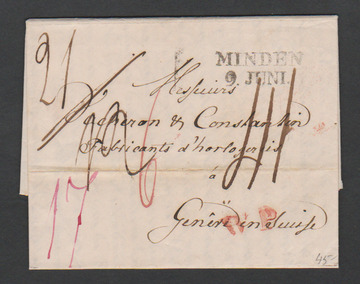 21
MINDEN
9. JUNI.
Messieurs
& Constantin
Fabricants d'horlogerie
à
6
Genève en Suisse
17
45-